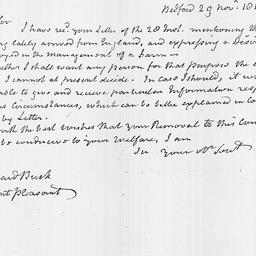 Bedford 29 Novr. 18
I have recd. your Letter of the 28 Inst. mentioning
lately arrived from England, and expressing a Desire
in the management of a Farm—
I shall want any person for that purpose the
I cannot at present decide. In case I should, it
able to give and receive particular Information
Circumstances, which can be better explained in
by Letter.
with the best wishes that your Removal to this
conducive to your Welfare, I am
your
Buck
Pleasant